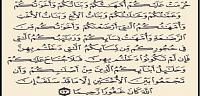 حُرِّمَتْ عَلَيْكُمْ أُمَّهَٰتُكُمْ وَبَنَاتُكُمْ وَأَخَوَٰتُكُمْ
وَعَمَّٰتُكُمْ وَخَٰلَٰتُكُمْ وَبَنَاتُ ٱلْأَخِ وَبَنَاتُ ٱلْأُخْتِ
وَأُمَّهَٰتُكُمُ ٱلَّٰتِىٓ أَرْضَعْنَكُمْ وَأَخَوَٰتُكُم مِّنَ
ٱلرَّضَٰعَةِ وَأُمَّهَٰتُ نِسَآئِكُمْ وَرَبَٰٓئِبُكُمُ ٱلَّٰتِى
فِى حُجُورِكُم مِّن نِّسَآئِكُمُ ٱلَّٰتِى دَخَلْتُم بِهِنَّ
فَإِن لَّمْ تَكُونُوا۟ دَخَلْتُم بِهِنَّ فَلَا جُنَاحَ عَلَيْكُمْ
وَحَلَٰٓئِلُ أَبْنَآئِكُمُ ٱلَّذِينَ مِنْ أَصْلَٰبِكُمْ وَأَن
تَجْمَعُوا۟ بَيْنَ ٱلْأُخْتَيْنِ إِلَّا مَا قَدْ سَلَفَ إِنَّ
ٱللَّهَ كَانَ غَفُورًا رَّحِيمًا ٢٣